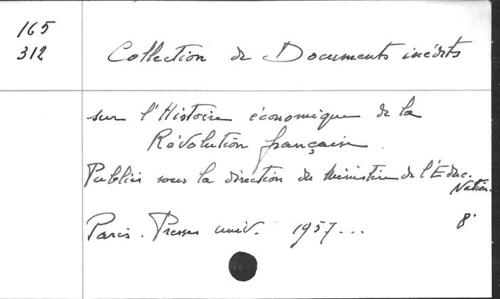 165
312
Collection de Documents inédits
sur l'Histoire économique de la
Révolution française.
Publiés sous la direction du Ministère de l'Educ.
Nation.
Paris. Presses univ. 1957...
8°